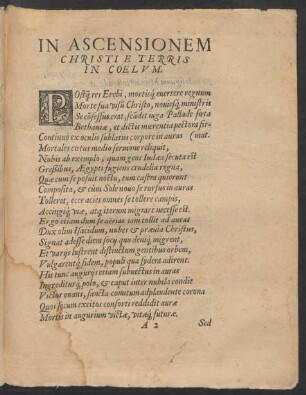 IN ASCENSIONEM
CHRISTI E TERRIS
IN COELVM.
POstq̃ res Erebi, mortisq́; euertere regnum
Morte sua visũ Christo, nouiusq́; ministris
Se cõfessus erat, scãdit iuga
Bethaniæ, et dictis mœrentia pectora fir-
Continuò ex oculis sublatus corpore in auras (mat.
Mortaleis cœtus medio sermone reliquit,
Nubis ab exemplo; quam gens Iudæa secuta est
Gressibus, Ægypti fugiens crudelia regna,
Quæ cum se posuit noctu, tum castra quierant
Composita, & cùm Sole nouo se rursus in auras
Tolleret, ecce acies omnes se tollere campis,
Accingiq́; viæ, atq; iterum migrare necesse est.
Ergo etiam dum se aërias iam tollit ad auras
Dux olim Isacidum, nubes & præuia Christus,
Signat adesse diem socijs quo deniq; migrent,
Et varijs lustrent distinctum gentibus orbem,
Vulgarentq́; fidem, populi qua sydera adirent.
Hic tunc augurijs etiam subuectus in auras
Ingrediturq́; polo, & caput inter nubila condit
Victor ouans, sancta comitum adplaudente corona
Quos secum excitos consorti reddidit auræ
Mortis in augurium victæ, vitæq́; futuræ.
A 2 Sed